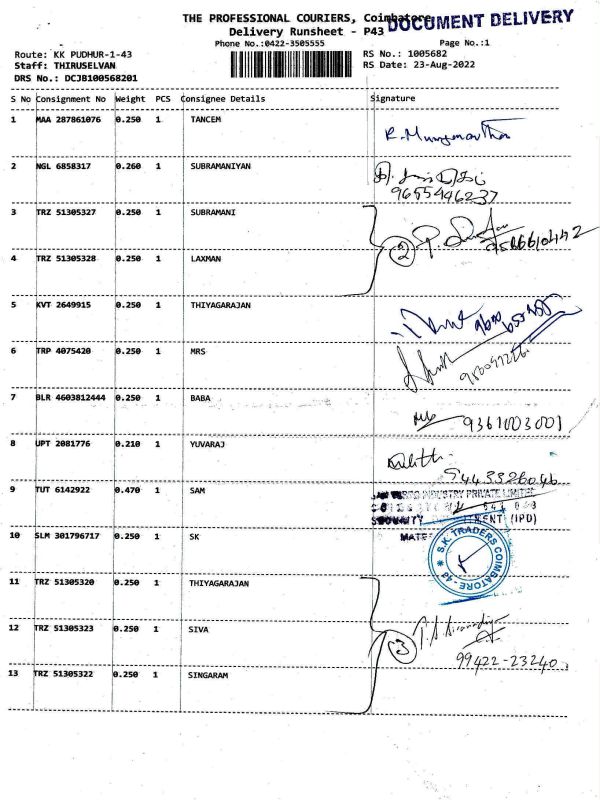 THE PROFESSIONAL COURIERS, Coimbatore
DOCUMENT DELIVERY
Delivery Runsheet - P43
Phone No.:0422-3505555
Page No.:1
Route: KK PUDHUR-1-43
RS No.: 1005682
Staff: THIRUSELVAN
RS Date: 23-Aug-2022
DRS No.: DCJB100568201
S No Consignment No Weight PCS Consignee Details Signature
1 MAA 287861076 0.250 1 TANCEM
2 NGL 6858317 0.260 1 SUBRAMANIYAN
9655446237
3 TRZ 51305327 0.250 1 SUBRAMANI
2
4 TRZ 51305328 0.250 1 LAXMAN
5 KVT 2649915 0.250 1 THIYAGARAJAN
6 TRP 4075420 0.250 1 MRS
7 BLR 4603812444 0.250 1 BABA
9361003001
8 UPT 2081776 0.210 1 YUVARAJ
9443326046
9 TUT 6142922 0.470 1 SAM
INDUSTRY PRIVATE LIMITED
(IPD)
10 SLM 301796717 0.250 1 SK
S.K. TRADERS COIMBATORE - 43
11 TRZ 51305320 0.250 1 THIYAGARAJAN
12 TRZ 51305323 0.250 1 SIVA
3
99422-23240
13 TRZ 51305322 0.250 1 SINGARAM